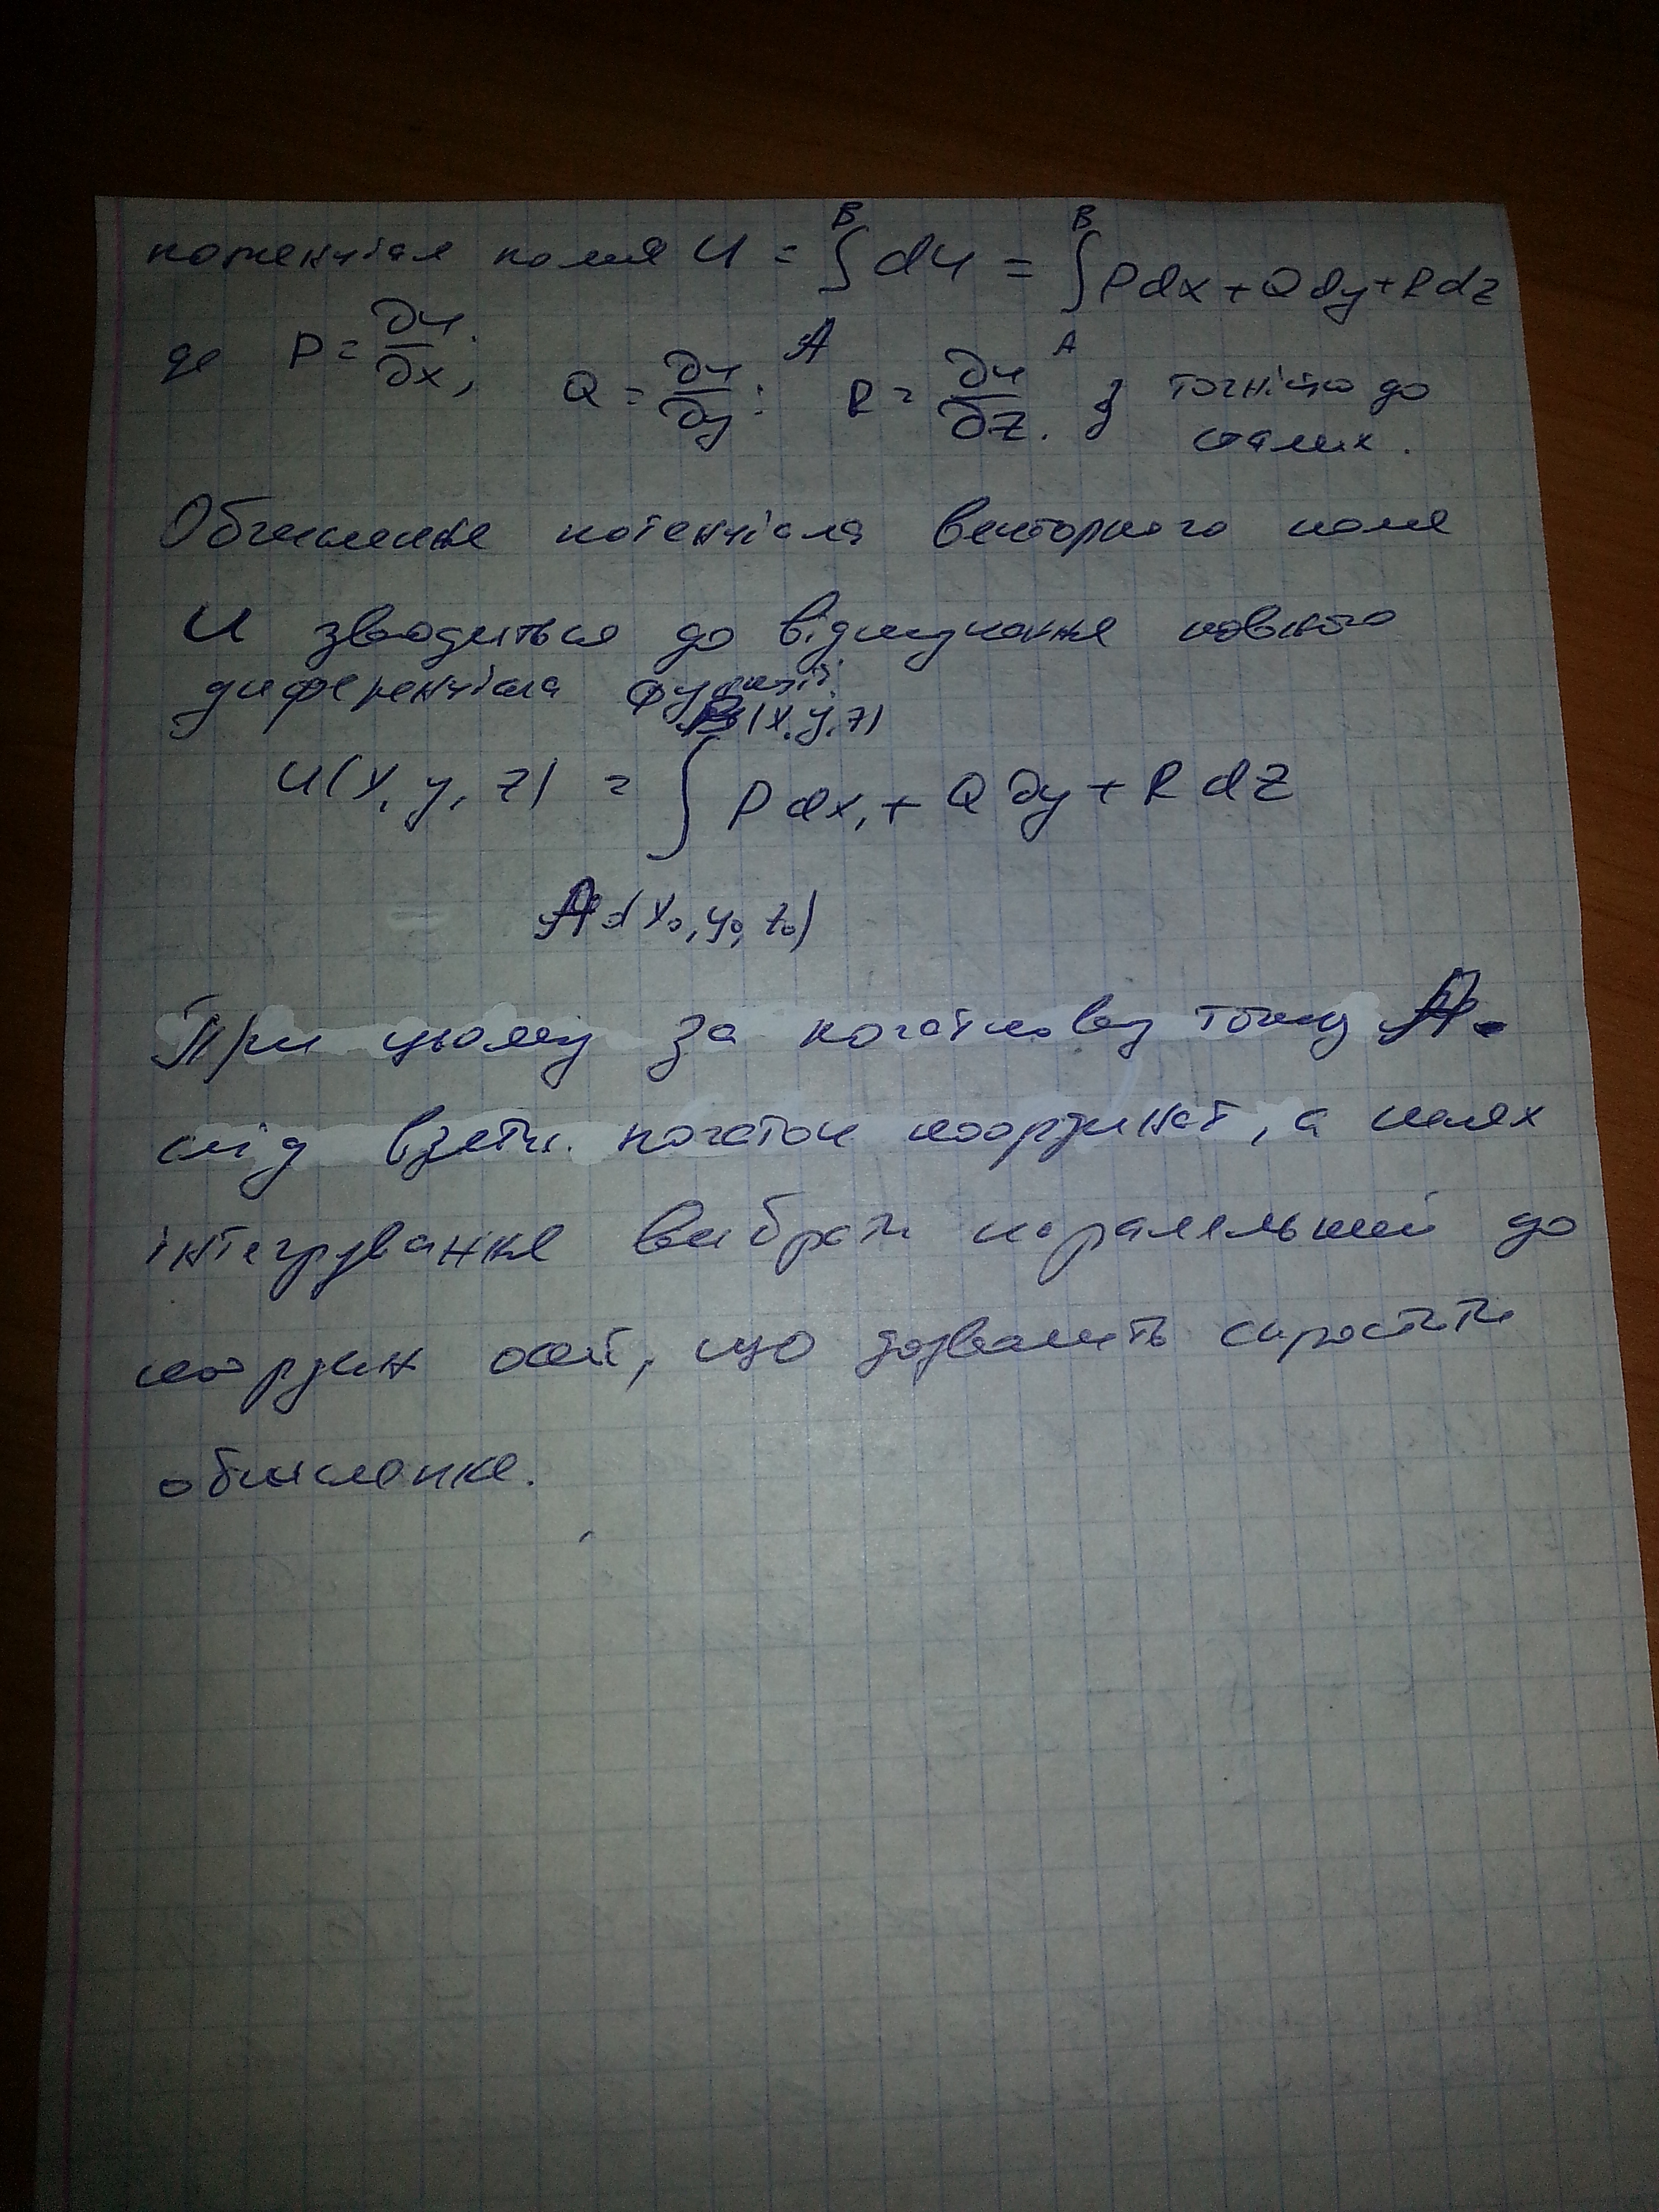 потенціал поля U = ∫_A^B du = ∫_A^B Pdx + Qdy + Rdz
де P = ∂u/∂x, Q = ∂u/∂y; R = ∂u/∂z. з точністю до
сталих.
Обчислення потенціала векторного поля
U зводиться до відшукання повного
диференціала функції:
U(x, y, z) = ∫_{A(x₀, y₀, z₀)}^{B(x, y, z)} P dx + Q dy + R dz
При цьому за початкову точку A
слід взяти початок координат, а шлях
інтегрування вибрати паралельний до
коордын осей, що дозволить спростити
обчислення.